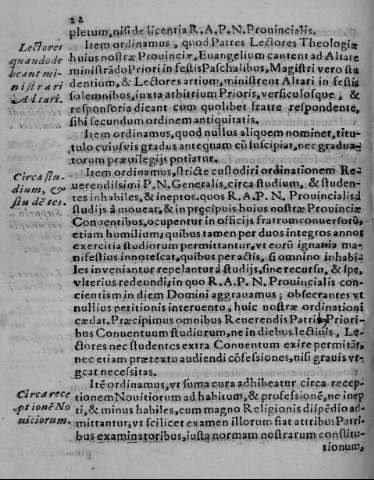 22
pletum, nisi de licentia R. A. P. N. Prouincialis.
Lectores quando debeant ministrari Altari.
Item ordinamus, quod Patres Lectores Theologiæ
huius nostræ Prouinciæ, Euangelium cantent ad Altare
ministrãdo Priori in festis Paschalibus, Magistri vero stu
dentium, & Lectores artium, ministrent Altari in festis
solemnibus, iuxta arbitrium Prioris, versiculosque, &
responsoria dicant cum quolibet fratre respondente,
sibi secundum ordinem antiquitatis.
Item ordinamus, quod nullus aliquem nominet, titu-
tulo cuiusvis gradus antequam cũ suscipiat, nec gradua-
torum præuilegijs potiatur.
Circa studium, & studẽtes.
Item ordinamus, stricte custodiri ordinationem Re
uerendissimi P. N. Generalis, circa studium, & studen-
tes inhabiles, & ineptos, quos R. A. P. N. Prouincialis à
studijs à moueat, & in præcipuis huius nostræ Prouinciæ
Conuentibus, ocupentur in officijs fratrum conuersorũ,
etiam humilium; quibus tamen per duos integros annos
exercitia studiorum permittantur, vt eorũ ignauia ma-
nifestius innotescat, quibus peractis, si omnino inhabi-
les inveniantur repelantur à studijs, sine recursu, & spe,
vlterius redeundi, in quo R. A. P. N. Prouincialis con-
cientiam in diem Domini aggrauamus; obsecrantes vt
nullius petitionis interuentu, huic nostræ ordinationi
cædat. Præcipimus omnibus Reuerendis Patribus Priori-
bus Conuentuum studiorum, ne in diebus lectiuis, Le-
ctores nec studentes extra Conuentum exire permitãt,
nec etiam prætextu audiendi cõfessiones, nisi grauis vr-
geat necesitas.
Circa receptionẽ Nouiciorum.
Itẽ ordinamus, vt suma cura adhibeatur circa recep-
tionem Nouitiorum ad habitum, & professionẽ, ne inep
ti, & minus habiles, cum magno Religionis dispẽdio ad-
mittantur, vt scilicet examen illorum fiat à tribus Patri-
bus examinatoribus, iustq normam nostrarum constitu-
tionum,